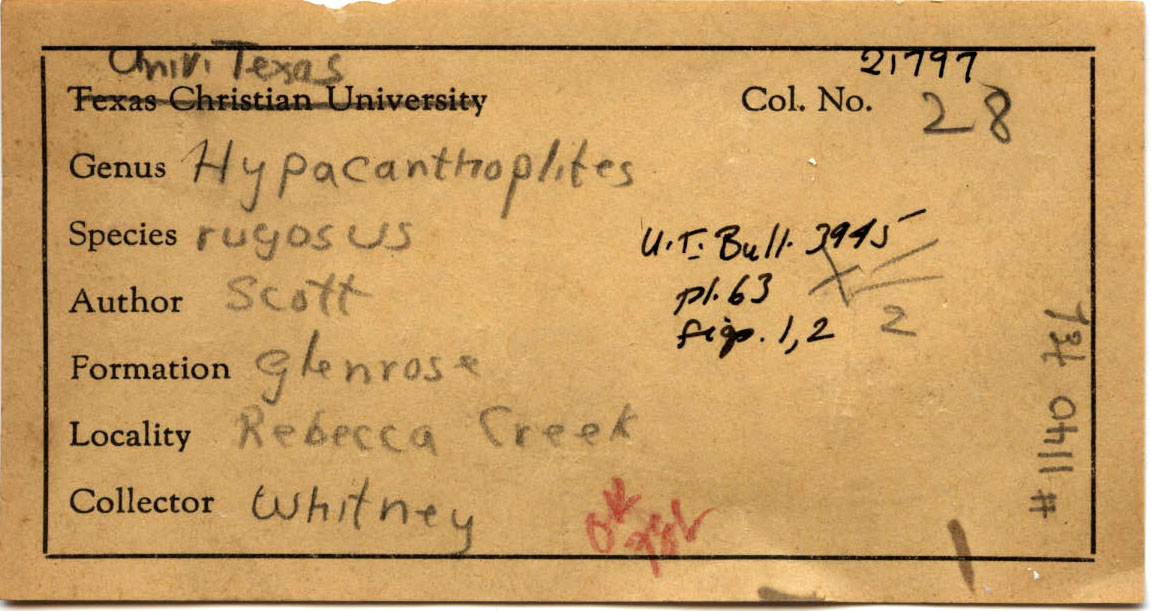 Univ. Texas
Texas Christian University
21797
Col. No. 28
Genus Hypacanthoplites
Species rugosus
U.T. Bull. 3945
Author Scott
pl. 63
figs. 1, 2
2
Formation Glenrose
Locality Rebecca Creek
Collector Whitney
OK
# 1140